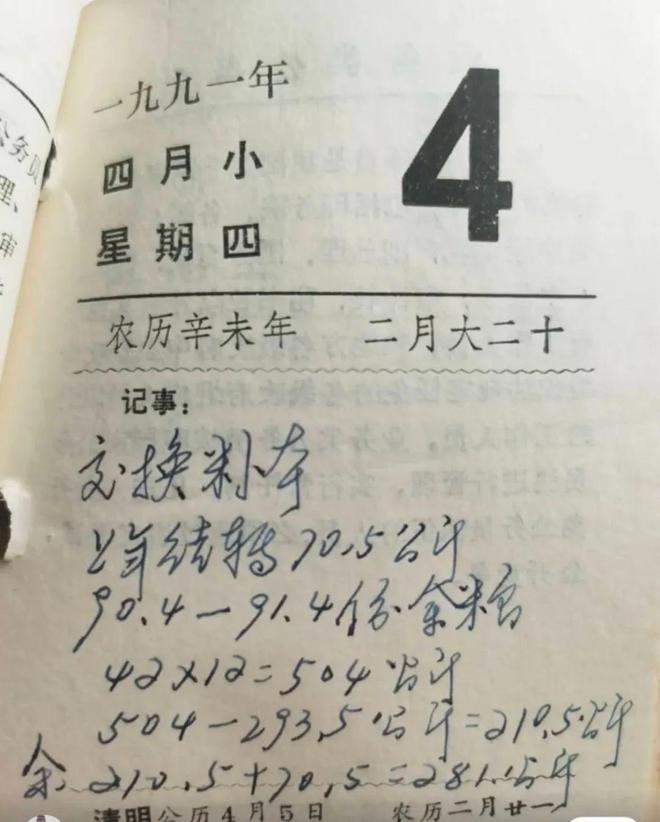 一九九一年
4
四月小
星期四
农历辛未年 二月大二十
记事：
交换粮本
上年结转70.5公斤
90.4-91.4份余米粮
42×12=504公斤
504-293.5公斤=210.5公斤
余 210.5+70.5=281公斤
清明公历4月5日 农历二月廿一
公务
理、
审